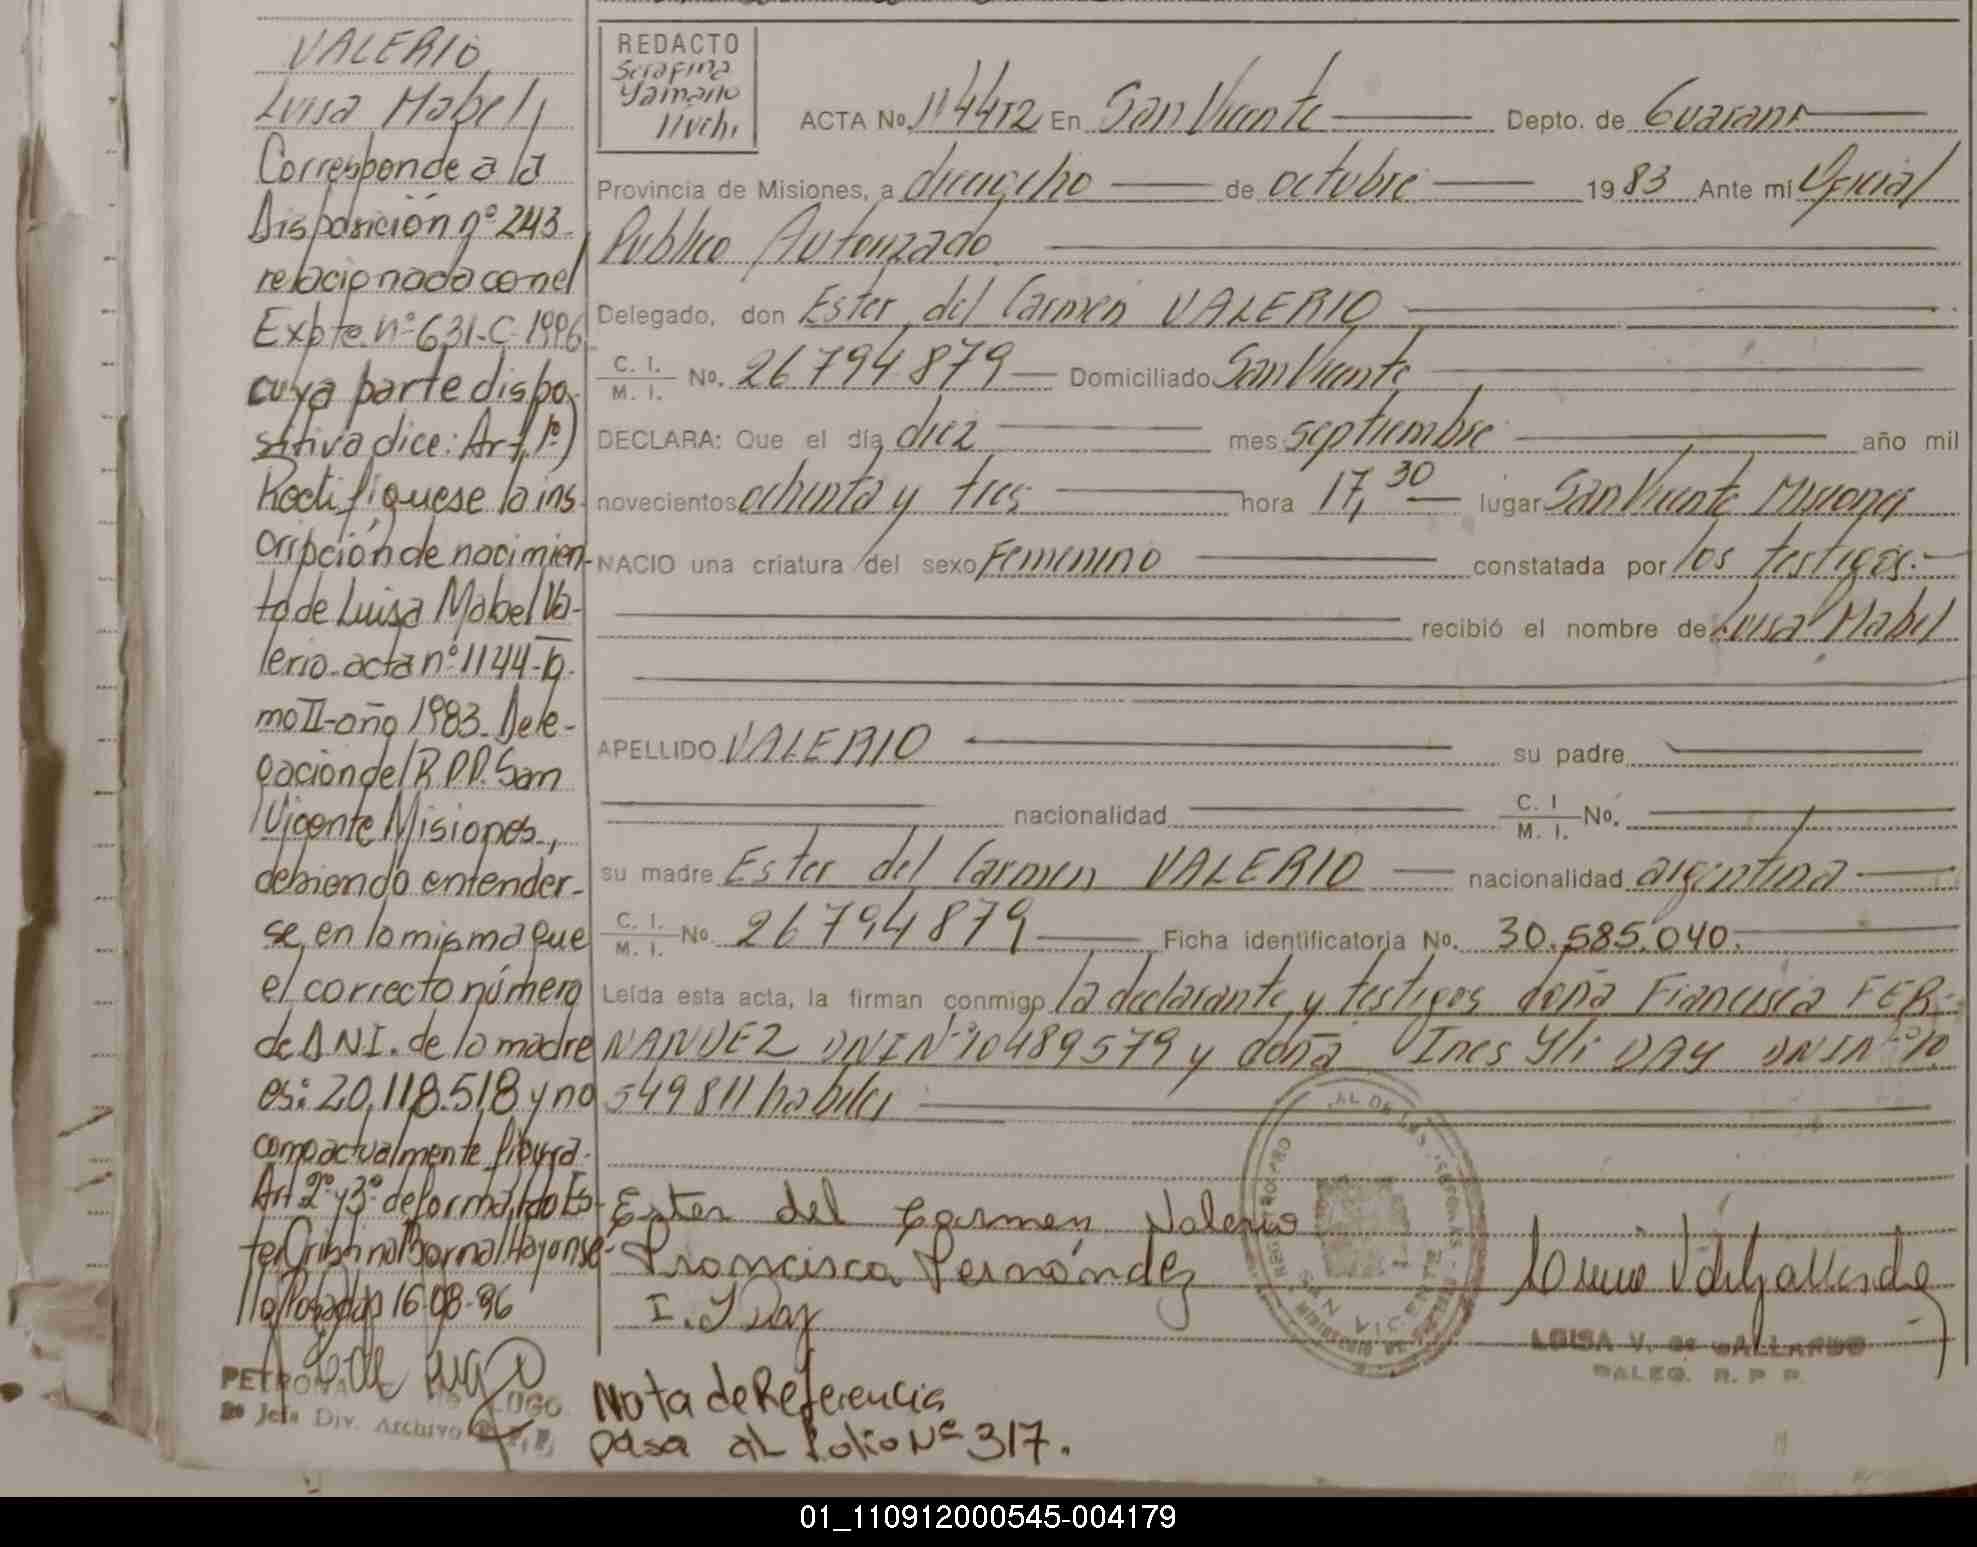 VALERIO
Luisa Mabel
Corresponde a la
Disposición nº 243
relacionada con el
Expte. nº 631-C-1996
cuya parte dispo-
sitiva dice: Art. 1º)
Rectifíquese la ins-
cripción de nacimien-
to de Luisa Mabel Va-
lerio-acta nº 1144-to-
mo II-año 1983-Dele-
gación del R.P.P. San
Vicente Misiones,
debiendo entender-
se en la misma que
el correcto número
de D.N.I. de la madre
es: 20.118.518 y no
como actualmente figura.
Art 2º y 3º de forma, fdo Es-
ter Cristina Bernal
Posadas 16-08-96
PETRONA LUGO
Jefa Div. Archivo
REDACTO
Serafina
ACTA No. 1144 T2 En San Vicente Depto. de Guaraní
Provincia de Misiones, a dieciocho de octubre 1983 Ante mí Oficial
Publico Autorizado
Delegado, don Ester del Carmen VALERIO
C. I. / M. I. No. 26794879 Domiciliado San Vicente
DECLARA: Que el día diez mes septiembre año mil
novecientos ochenta y tres hora 17,30 lugar San Vicente Misiones
NACIO una criatura del sexo Femenino constatada por los testigos.
recibió el nombre de Luisa Mabel
APELLIDO VALERIO su padre
nacionalidad C. I. / M. I. No.
su madre Ester del Carmen VALERIO nacionalidad argentina
C. I. / M. I. No. 26794879 Ficha identificatoria No. 30.585.040.
Leída esta acta, la firman conmigo la declarante y testigos doña Francisca FER-
NANDEZ DNI Nº 10489579 y doña Ines DAY DNI Nº 10
549811 habiles
Ester del Carmen Valerio
Francisca Fernández
SAN VICENTE
LUISA V. de GALLARDO
DELEG. R. P. P.
Nota de Referencia
pasa al folio Nº 317.
01_110912000545-004179